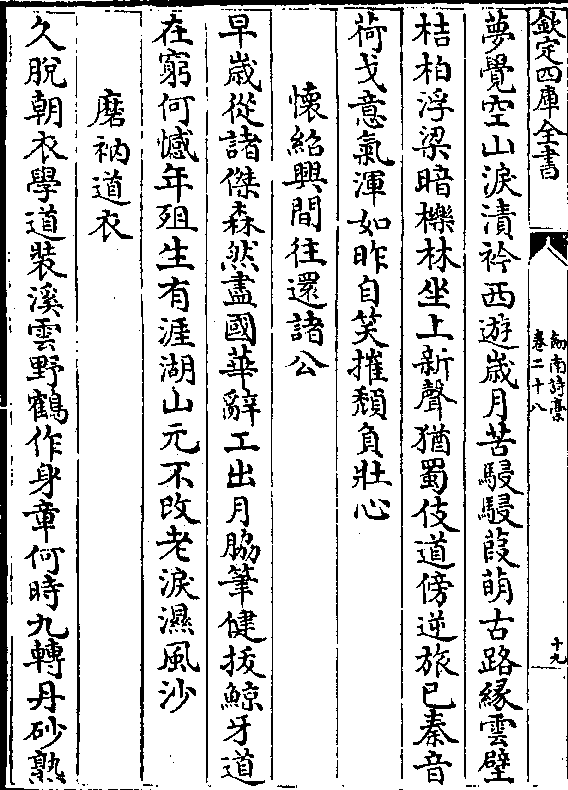 欽定四庫全書
劒南詩藁
卷二十八
十九
夢覺空山淚漬衿西遊歲月苦駸駸葭萌古路緣雲壁
桔柏浮梁暗櫟林坐上新聲猶蜀伎道傍逆旅已秦音
荷戈意氣渾如昨自笑摧頹負壯心
懷紹興間往還諸公
早歲從諸傑森然盡國華辭工出月脇筆健拔鯨牙道
在窮何憾年殂生有涯湖山元不改老淚濕風沙
磨衲道衣
久脫朝衣學道裝溪雲野鶴作身章何時九轉丹砂熟